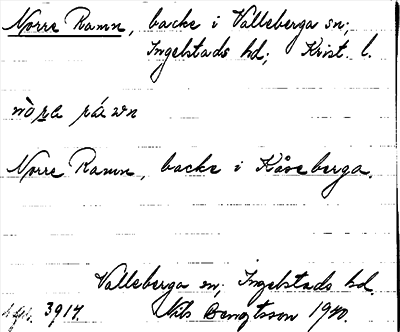 Norre Ramn, backe i Valleberga sn;
Ingelstads hd; Krist. l.
Norre Ramn, backe i Kåseberga.
Valleberga sn; Ingelstads hd.
3914. Nils Bengtsson 1920.